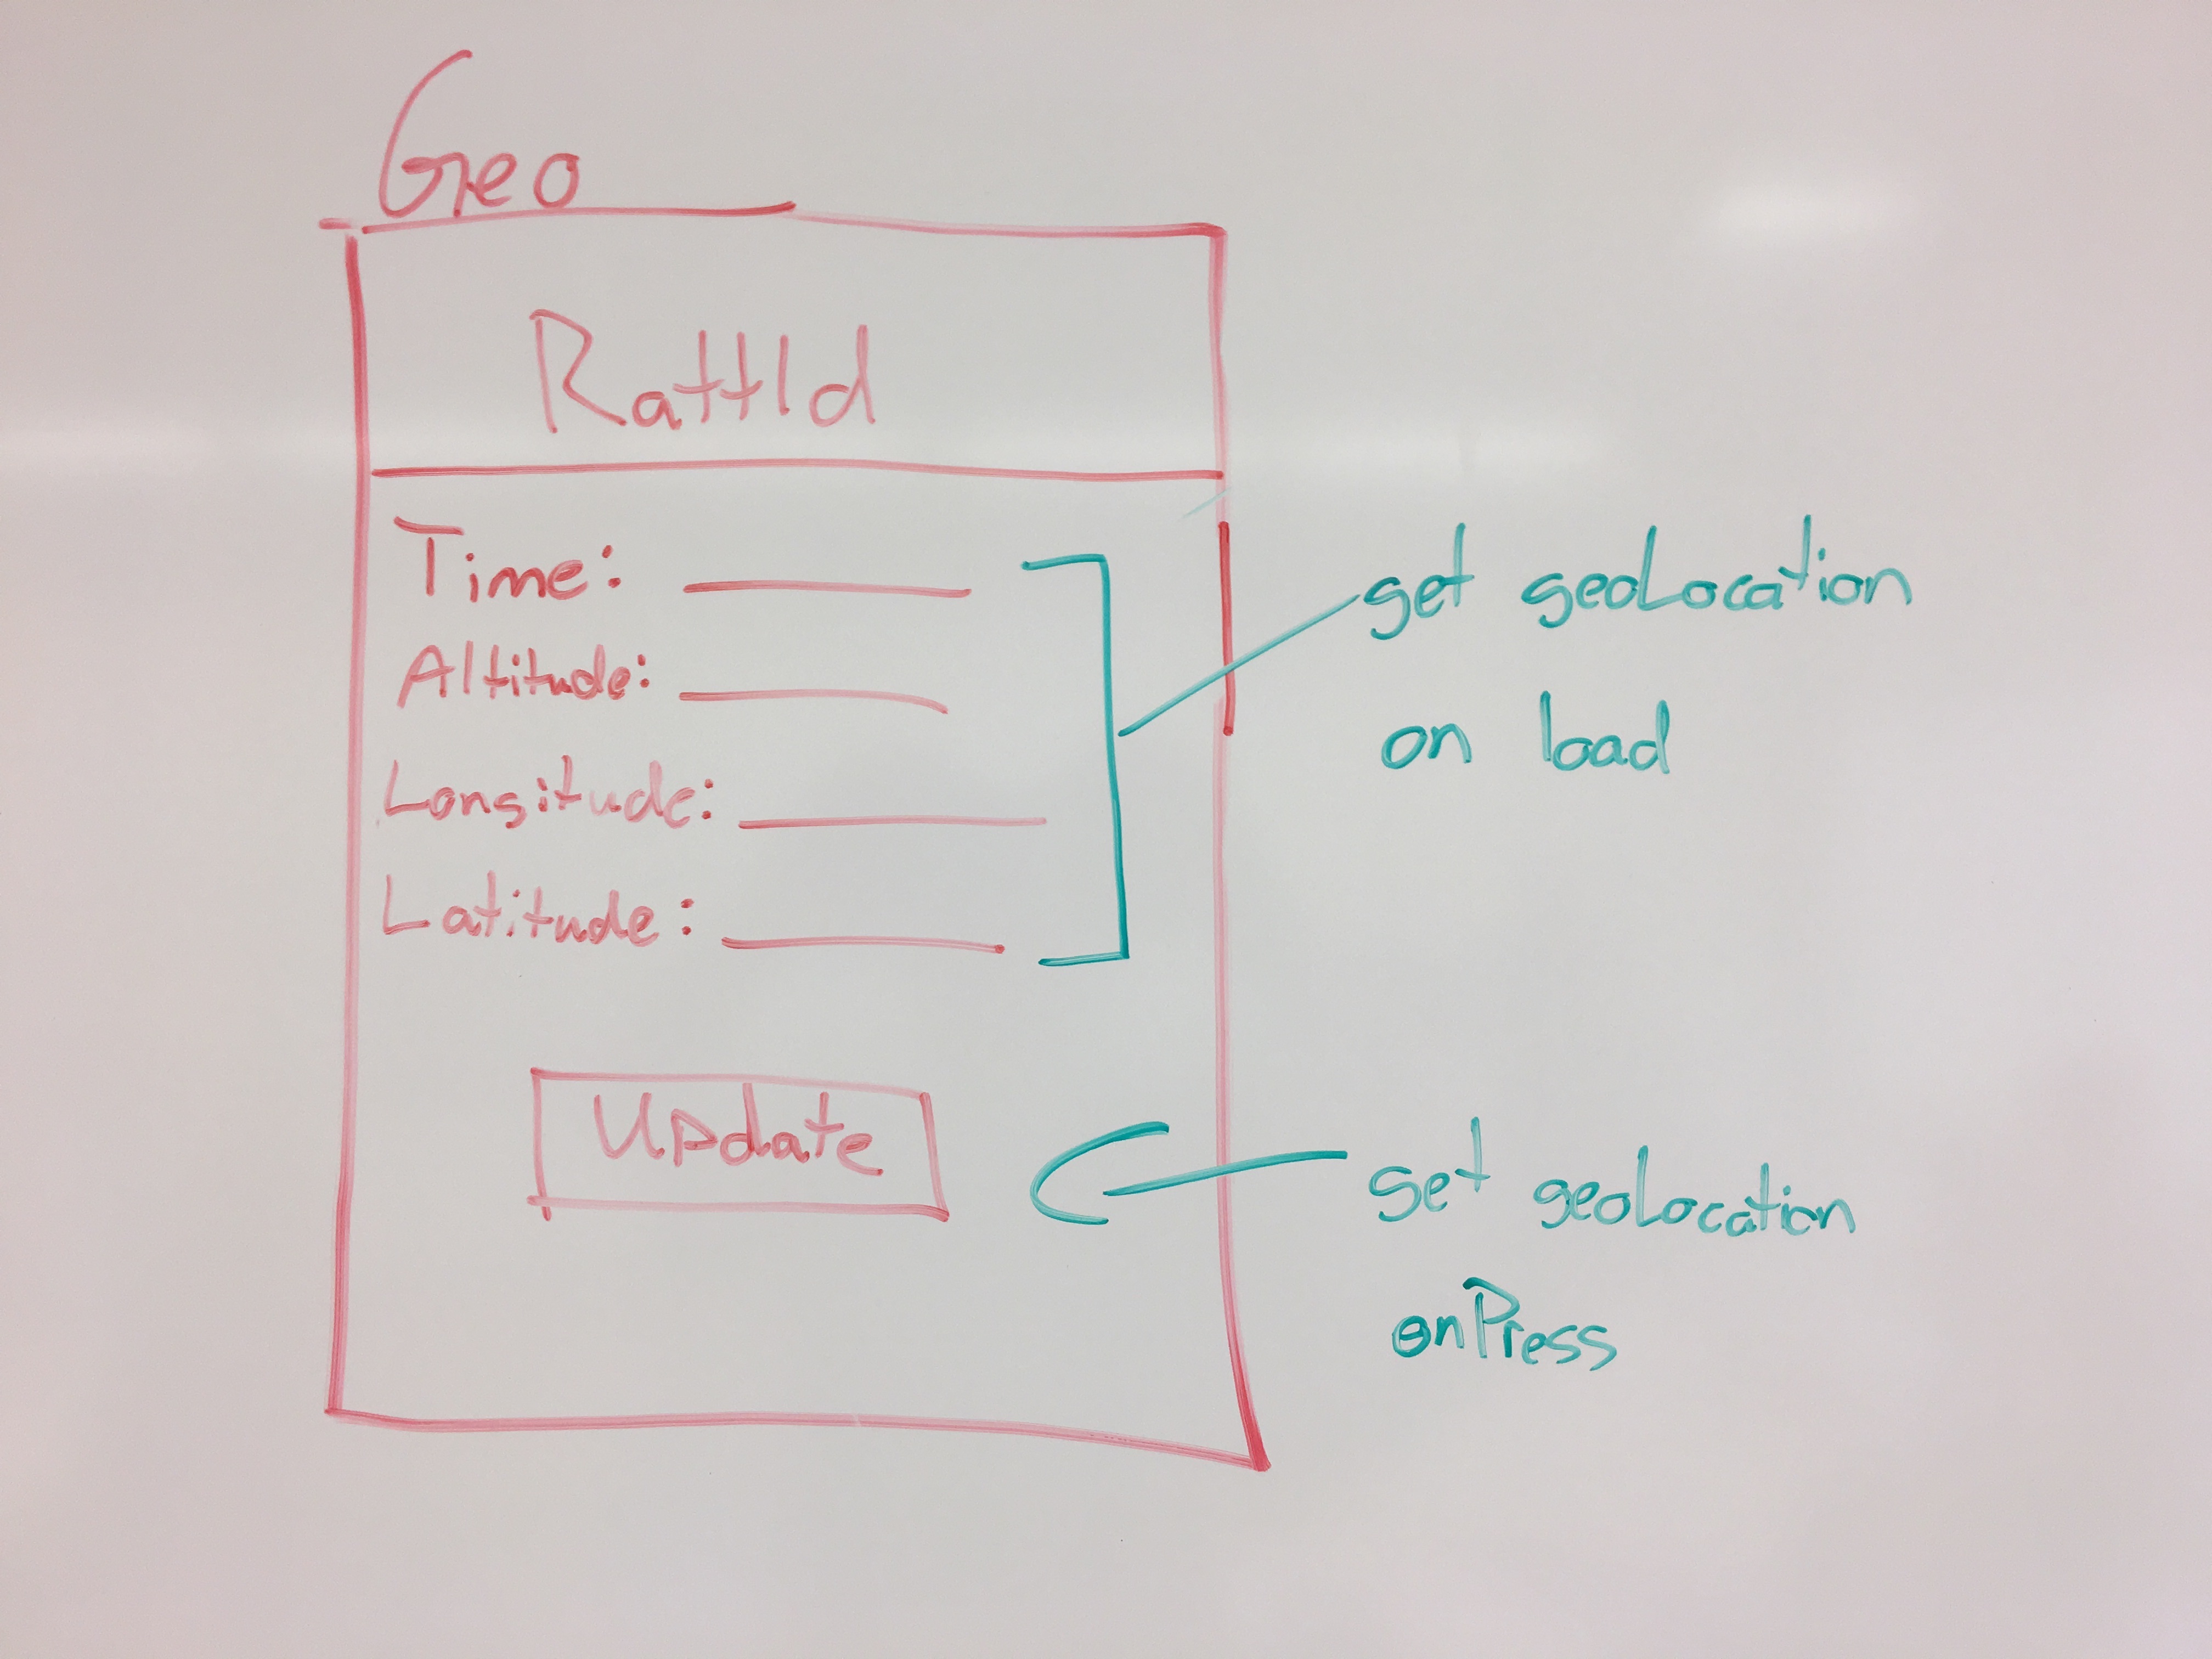 Geo
Rattld
Time:
Altitude:
Longitude:
Latitude:
Update
get geoLocation
on load
set geoLocation
onPress